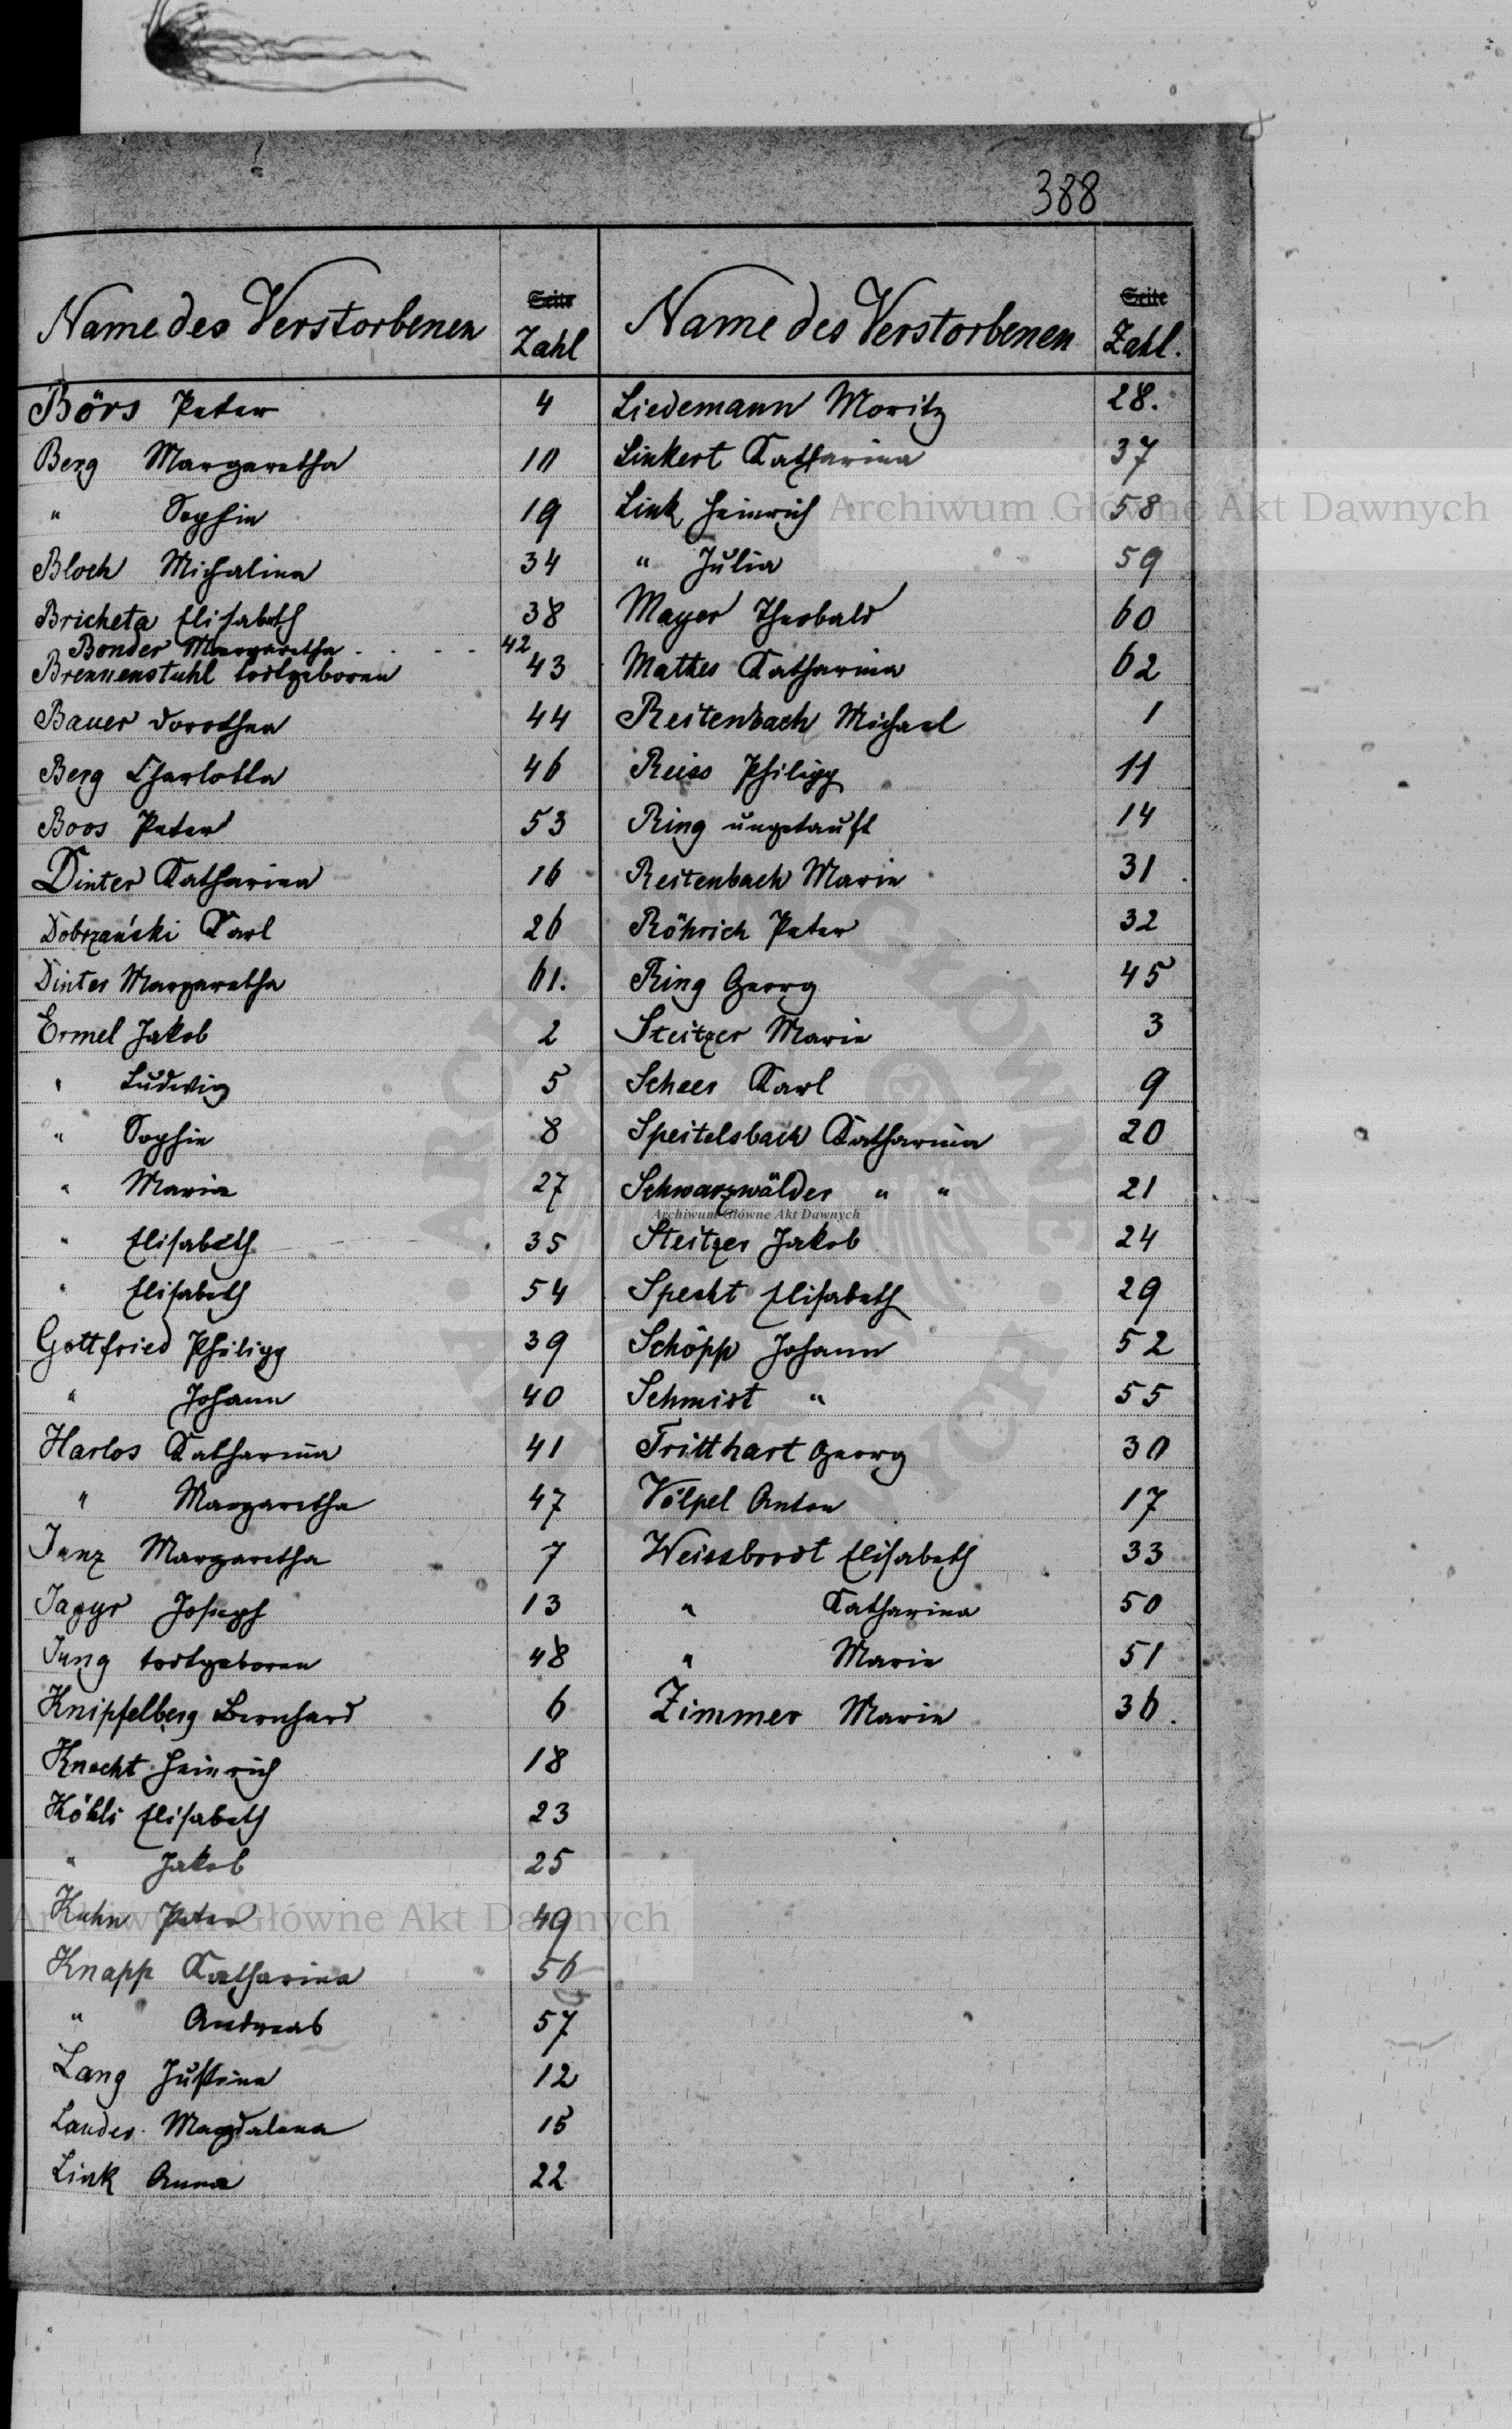 388
Name des Verstorbenen
Seite
Zahl
Börs Peter 4
Berg Margaretha 10
" Sophie 19
Bloch Michalina 34
Bricheta Elisabeth 38
Bonder Margaretha . . . . 42
Brennenstuhl todtgeboren 43
Bauer Dorothea 44
Berg Charlotta 46
Boos Peter 53
Dinter Katharina 16
Dobrzański Karl 26
Dinter Margaretha 61.
Ermel Jakob 2
" Ludwig 5
" Sophie 8
" Maria 27
" Elisabeth 35
" Elisabeth 54
Gottfried Philipp 39
" Johann 40
Harlos Katharina 41
" Margaretha 47
Janz Margaretha 7
Jagyr Joseph 13
Jung todtgeboren 48
Knipfelberg Bernhard 6
Knecht Heinrich 18
Köhli Elisabeth 23
" Jakob 25
Kuhn Peter 49
Knapp Katharina 56
" Andreas 57
Lang Justine 12
Lander Magdalena 15
Link Anna 22
Name des Verstorbenen
Seite
Zahl.
Liedemann Moritz 28.
Linkert Katharina 37
Link Heinrich 58
" Julia 59
Mayer Theobald 60
Mathes Katharina 62
Reitenbach Michael 1
Reiss Philipp 11
Ring ungetauft 14
Reitenbach Marie 31
Röhrich Peter 32
Ring Georg 45
Steitzer Marie 3
Scheer Karl 9
Speitelsbach Katharina 20
Schwarzwälder " " 21
Steitzer Jakob 24
Specht Elisabeth 29
Schöpp Johann 52
Schmidt " 55
Tritthart Georg 30
Völpel Anton 17
Weissbrodt Elisabeth 33
" Katharina 50
" Marie 51
Zimmer Marie 36.
Archiwum Główne Akt Dawnych
Archiwum Główne Akt Dawnych
Archiwum Główne Akt Dawnych
ARCHIWUM GŁÓWNE AKT DAWNYCH